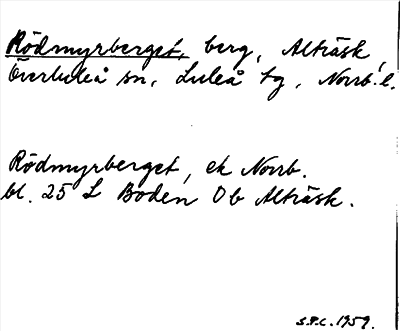 Rödmyrberget, berg, Alträsk,
Överluleå sn, Luleå tg, Norrb. l.
Rödmyrberget, ek Norrb.
bl. 25 L Boden Ob Alträsk.
S.P.C. 1959.